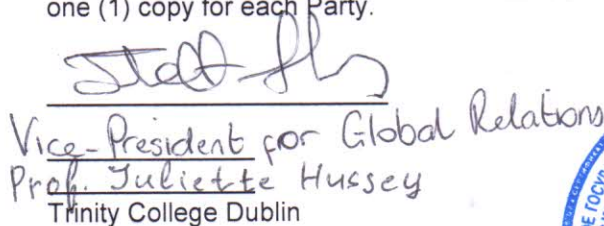 one (1) copy for each Party.
Vice-President for Global Relations
Prof. Juliette Hussey
Trinity College Dublin